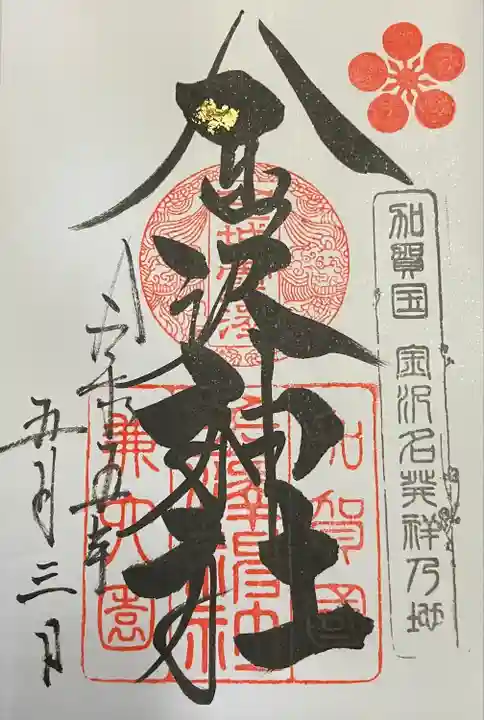 加賀国 金沢名発祥乃地
金沢神社
加賀國
金澤神社
兼六園
令和五年
五月三日